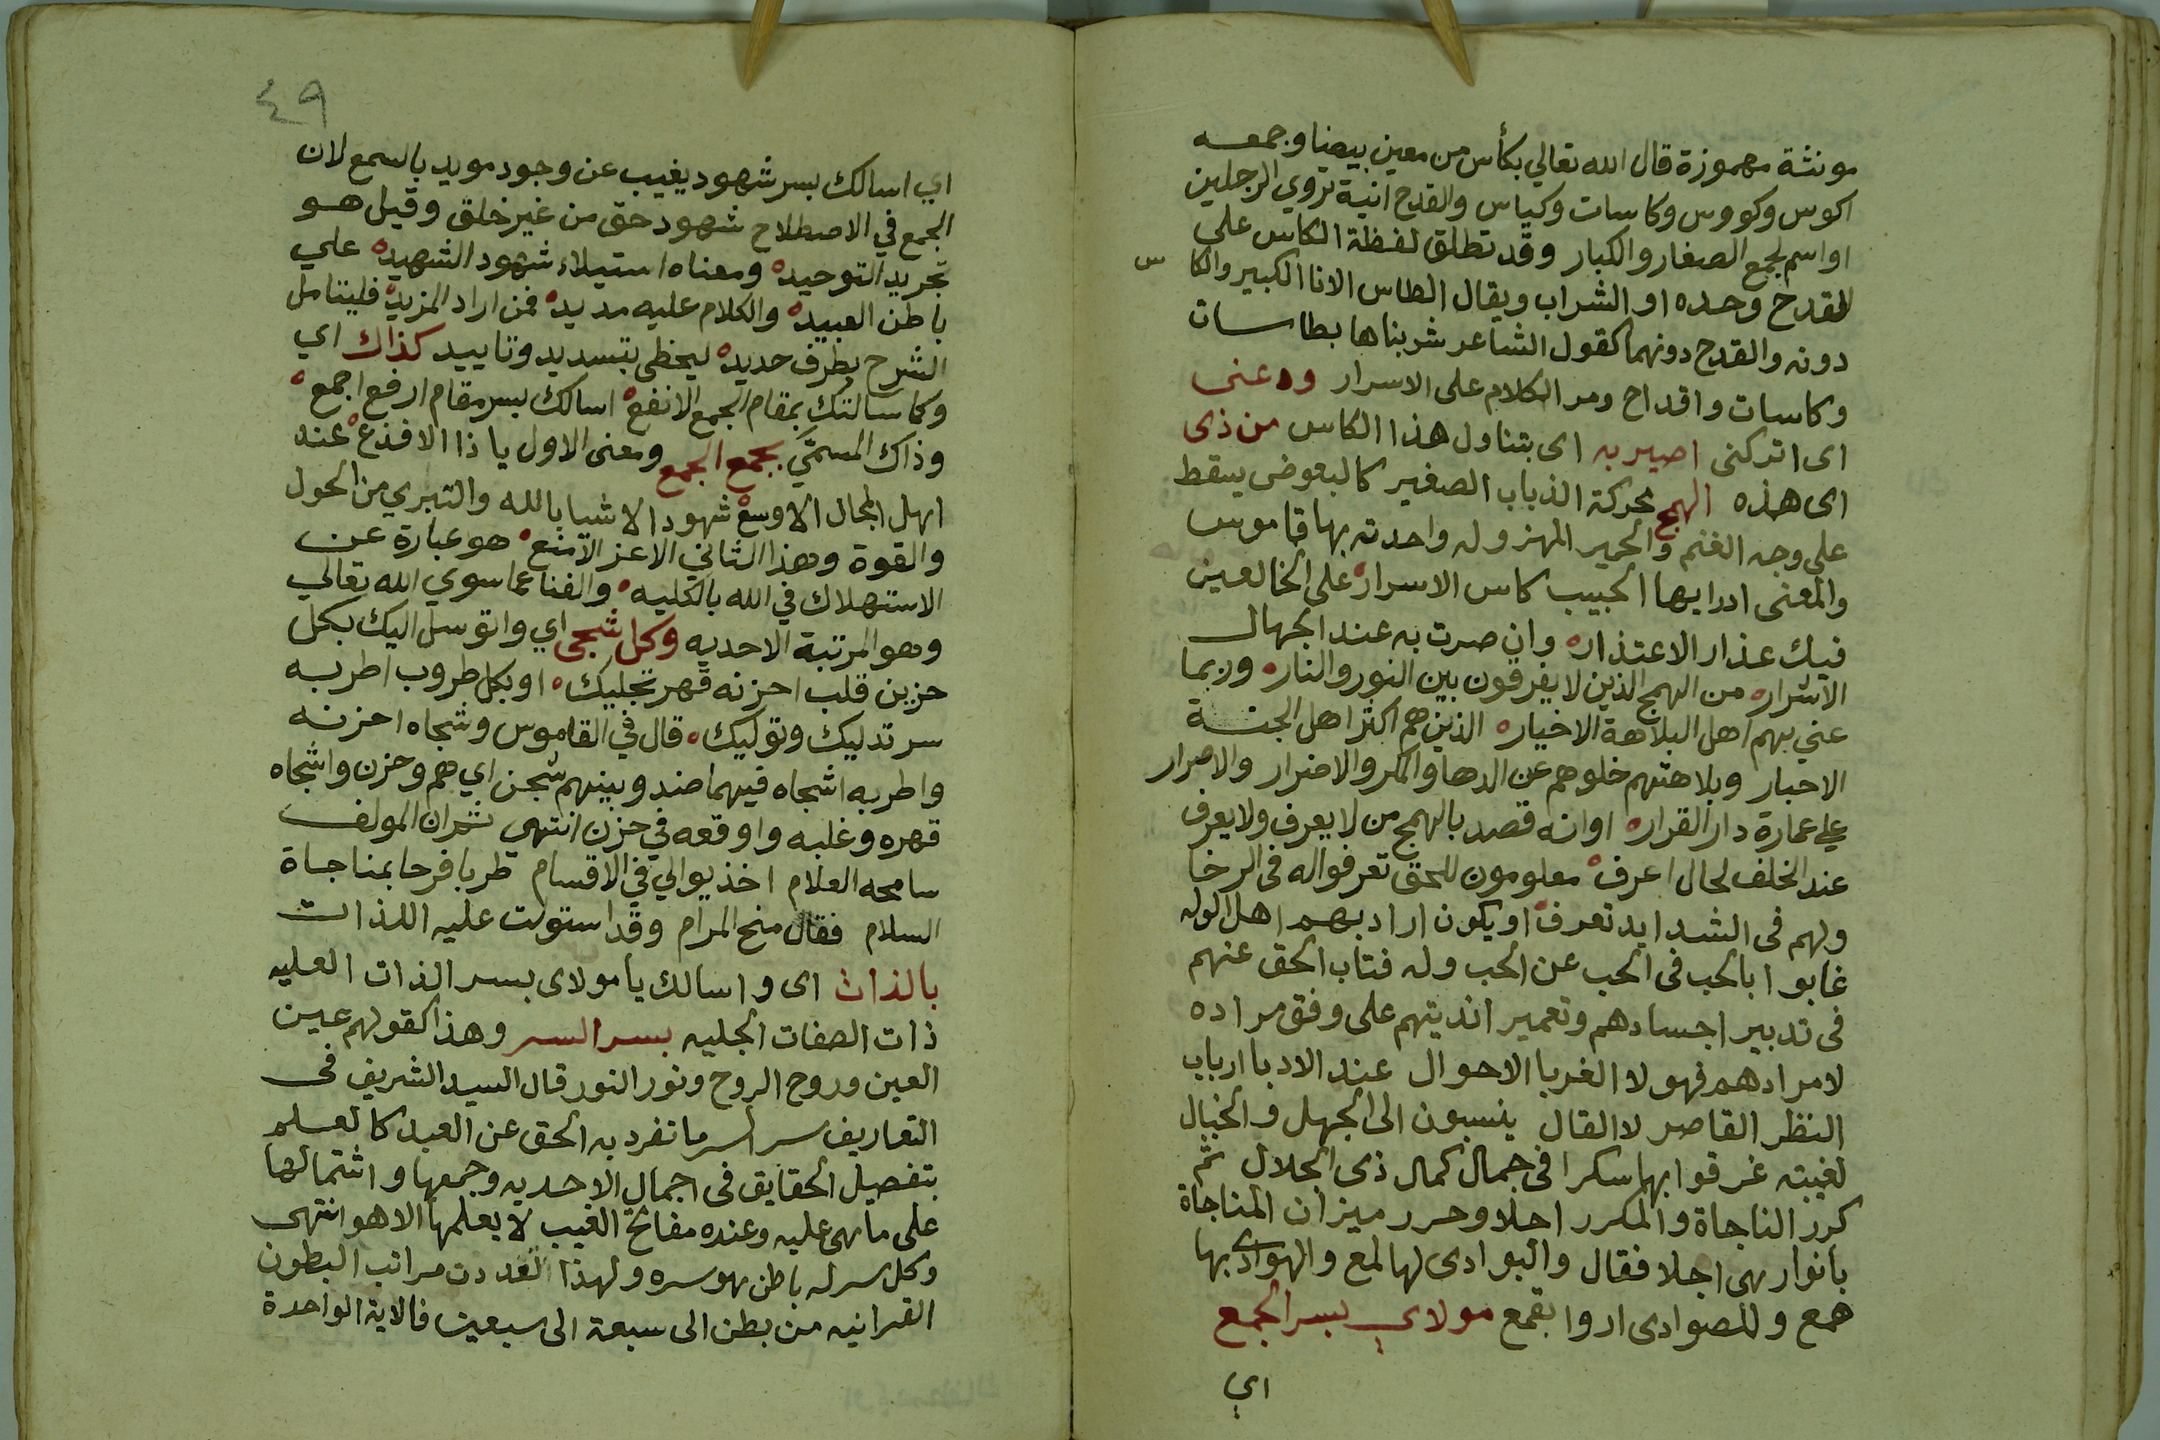 مونثة مهموزة قال الله تعالي بكأس من معين بيضا وجمعه
اكوس وكووس وكاسات وكياس والقدح انية تروي الرجلين
او اسم لجمع الصغار والكبار وقد تطلق لفظة الكاس علي
القدح وحده او الشراب ويقال الطاس الانا الكبير والكاس
دونه والقدح دونهما كقول الشاعر شربناها بطاسات
وكاسات واقداح ومر الكلام على الاسرار ودعنى
اى اتركنى اصير به اى بتناول هذا الكاس من ذى
اى هذه الهمج محركة الذباب الصغير كالبعوض يسقط
على وجه الغنم والحمير المهزوله واحدته بها قاموس
والمعنى ادر ايها الحبيب كاس الاسرار على الخالعين
فيك عذار الاعتذاره وان صرت به عند الجهال
الاشراره من الهمج الذين لا يفرقون بين النور والناره وربما
عني بهم اهل البلاهة الاخياره الذين هم اكثر اهل الجنة
الاحبار وبلاهتهم خلوهم عن الدها والمكر والاضرار والاصرار
علي عمارة دار القراره او انه قصد بالهمج من لا يعرف ولا يعرف
عند الخلف لحال اعرف معلومون للحق تعرفواله فى الرخا
ولهم فى الشدايد تعرف او يكون اراد بهم اهل الوله
غابوا بالحب فى الحب عن الحب وله فتاب الحق عنهم
فى تدبير اجسادهم وتعمير انديتهم على وفق مراده
لا مرادهم فهولا الغربا الاحوال عند الادبا ارباب
النظر القاصر لا القال ينسبون الى الجهل والخبال
لغيبته غرقوا بها سكرا فى جمال كمال ذى الجلال ثم
كرر الناجاة والمكرر احلا وحرر ميزان المناجاة
بانوار هى اجلا فقال والبوادى لها لمع والهوادى بها
همع وللصوادى اروا بقمع مولاي بسر الجمع
اي
٤٩
اي اسالك بسر شهود يغيب عن وجود مويد بالسمع لان
الجمع في الاصطلاح شهود حق من غير خلق وقيل هو
تجريد التوحيده ومعناه استيلاء شهود الشهيده علي
باطن العبيده والكلام عليه مديده فمن اراد المزيده فليتامل
الشرح بطرف حديده ليحظى بتسديد وتاييد كذاك اي
وكما سالتك بمقام الجمع الانفع اسالك بسر مقام ارفع اجمع
وذاك المسمَّي بجمع الجمع ومعنى الاول يا ذا الافذع عند
اهل المجال الاوسع شهود الاشيا بالله والتبري من الحول
والقوة وهذا الثاني الاعز الامنع هو عبارة عن
الاستهلاك في الله بالكليه والفنا عما سوي الله تعالي
وهو المرتبة الاحديه وكل شجى اي واتوسل اليك بكل
حزين قلب احزنه قهر تجليك او بكل طروب اطربه
سر تدليك وتوليك قال في القاموس وشجاه احزنه
واطربه اشجاه فيهما ضد وبينهم شجن اي هم وحزن واشجاه
قهره وغلبه واوقعه في حزن انتهى ثم ان المولف
سامحه العلام اخذ يوالي في الاقسام طربا فرحا بمناجاة
السلام فقال منح المرام وقد استولت عليه اللذات
بالذات اى واسالك يا مولاى بسر الذات العليه
ذات الصفات الجليه بسر السر وهذا كقولهم عين
العين وروح الروح ونور النور قال السيد الشريف فى
التعاريف سر السر ما تفرد به الحق عن العبد كالعلم
بتفصيل الحقايق فى اجمال الاحديه وجمعها واشتمالها
على ما هى عليه وعنده مفاتح الغيب لا يعلمها الا هو انتهى
وكل سر له باطن هو سره ولهذا تعددت مراتب البطون
القرانيه من بطن الى سبعة الى سبعين فالاية الواحدة